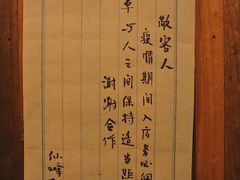 敬客人
疫情期间入店务必佩
草与人之间保持适当距
谢谢合作
仙峰